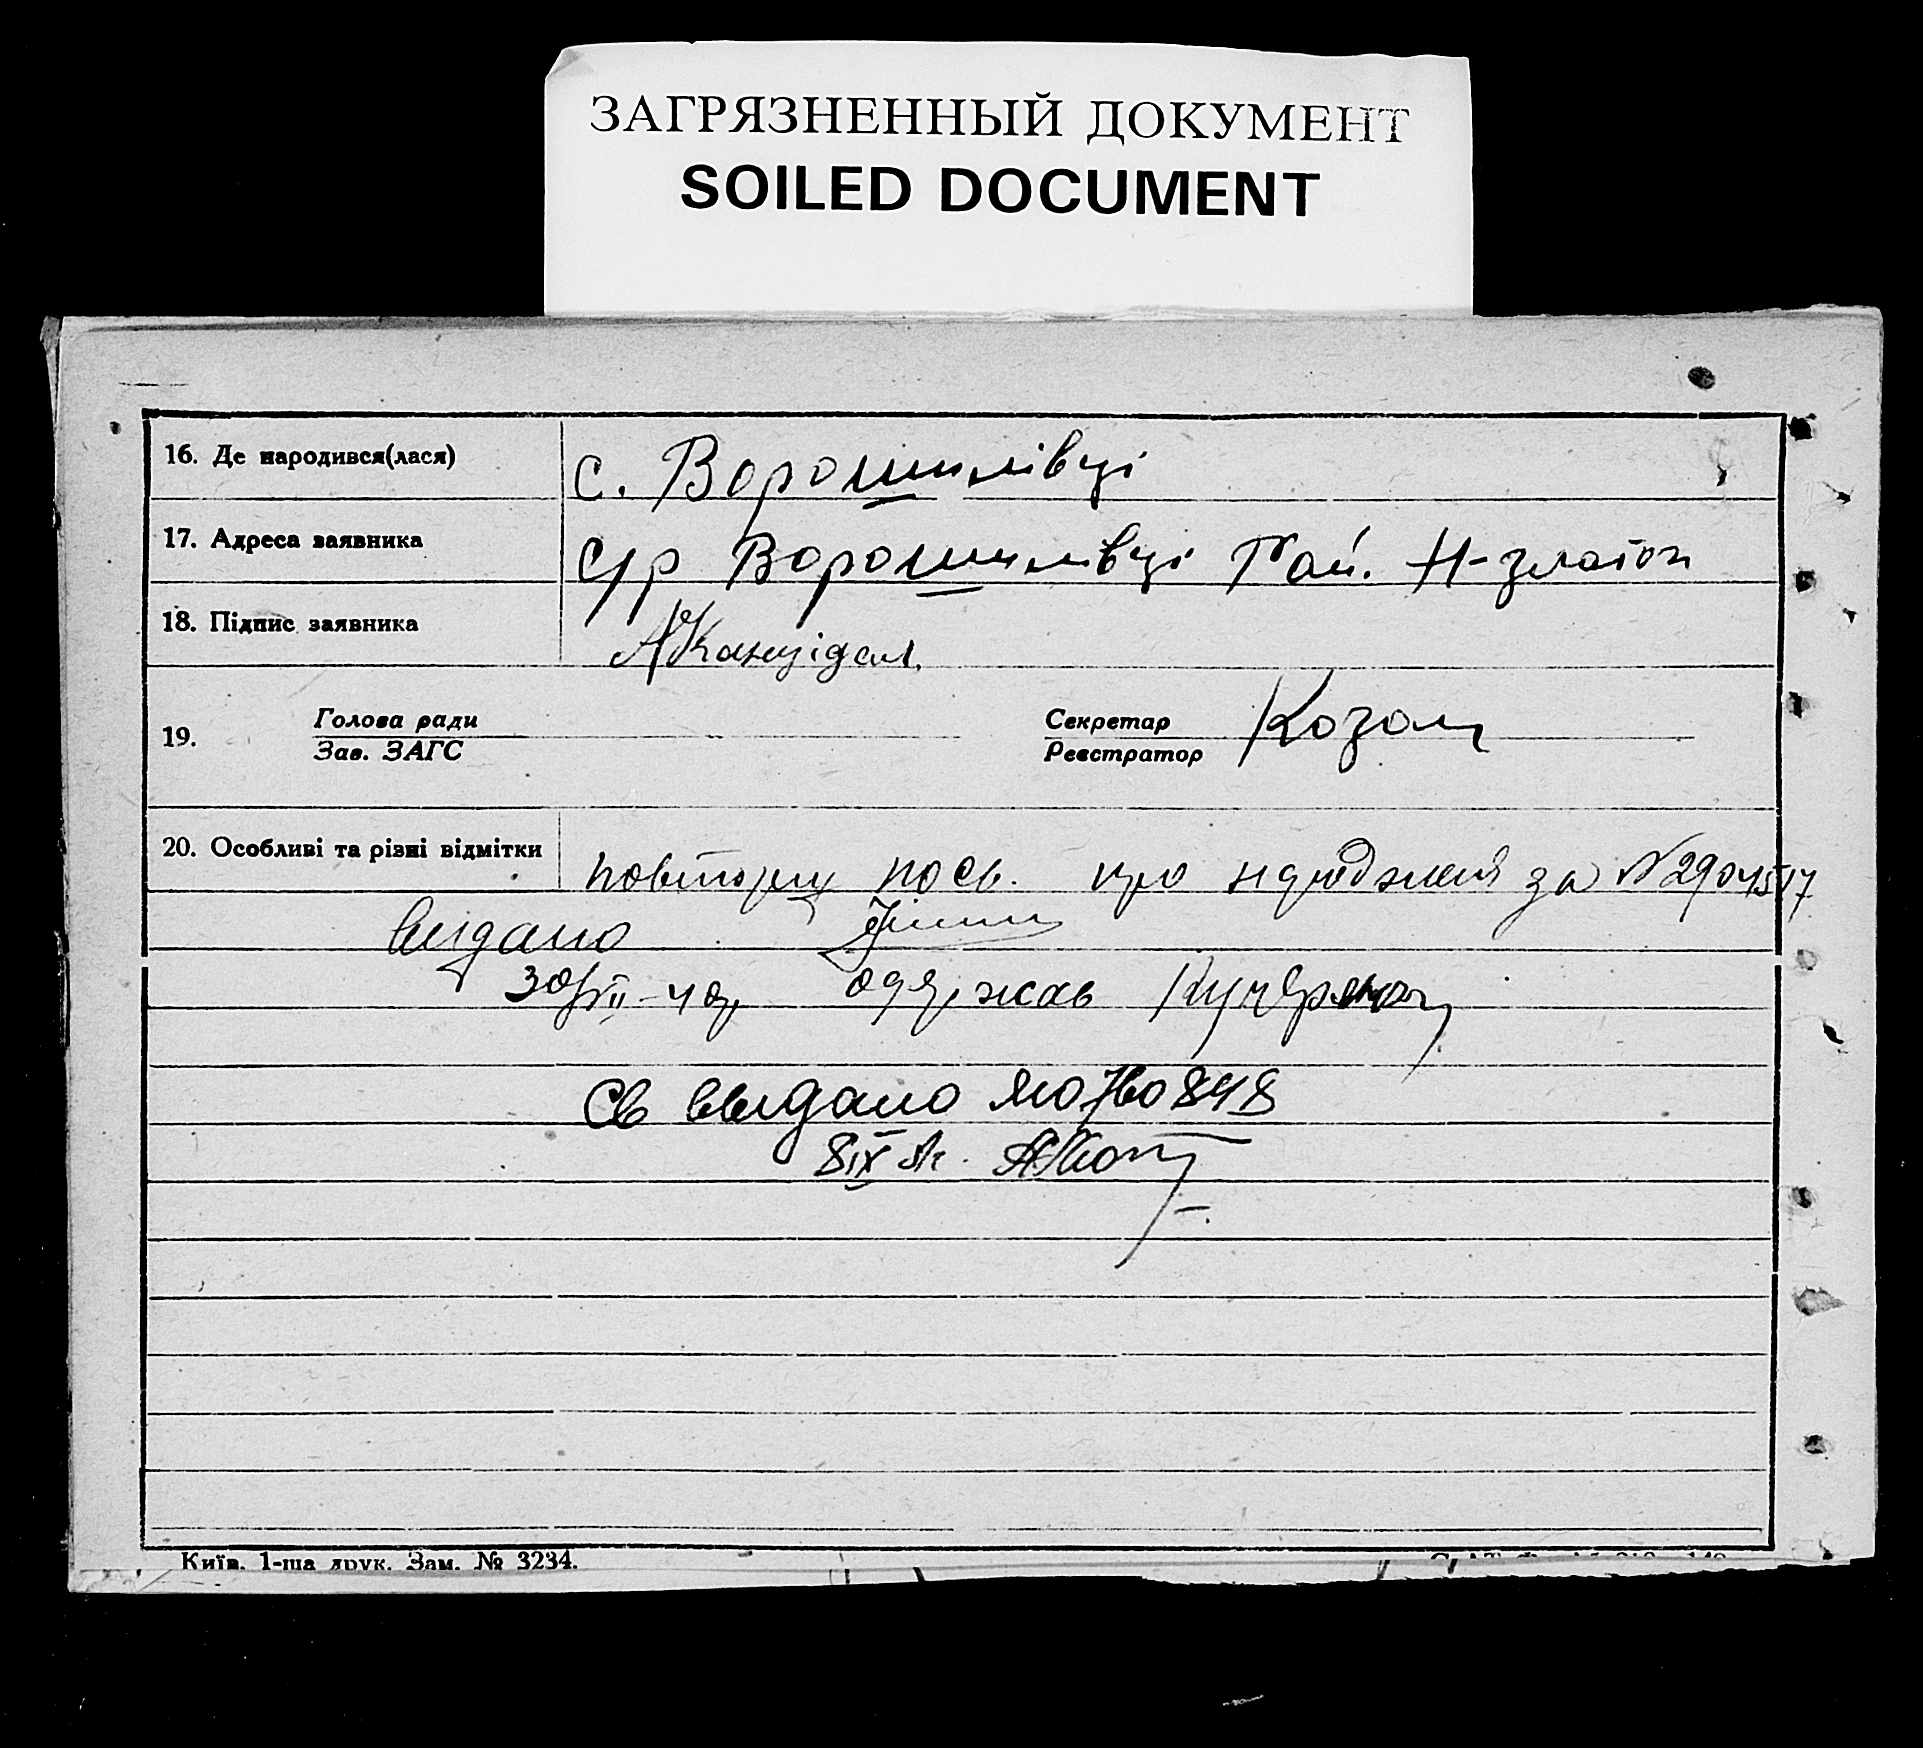 ЗАГРЯЗНЕННЫЙ ДОКУМЕНТ
SOILED DOCUMENT
16. Де народився(лася) с. Ворошилівці
17. Адреса заявника с/р Ворошилівці Рай.
18. Підпис заявника
19. Голова ради Секретар
Зав. ЗАГС Реєстратор
20. Особливі та різні відмітки повторну посв. про народження за №
видано
одержав
Св видано ЯЮ 760848
8 IX
Київ. 1-ша друк. Зам. № 3234.